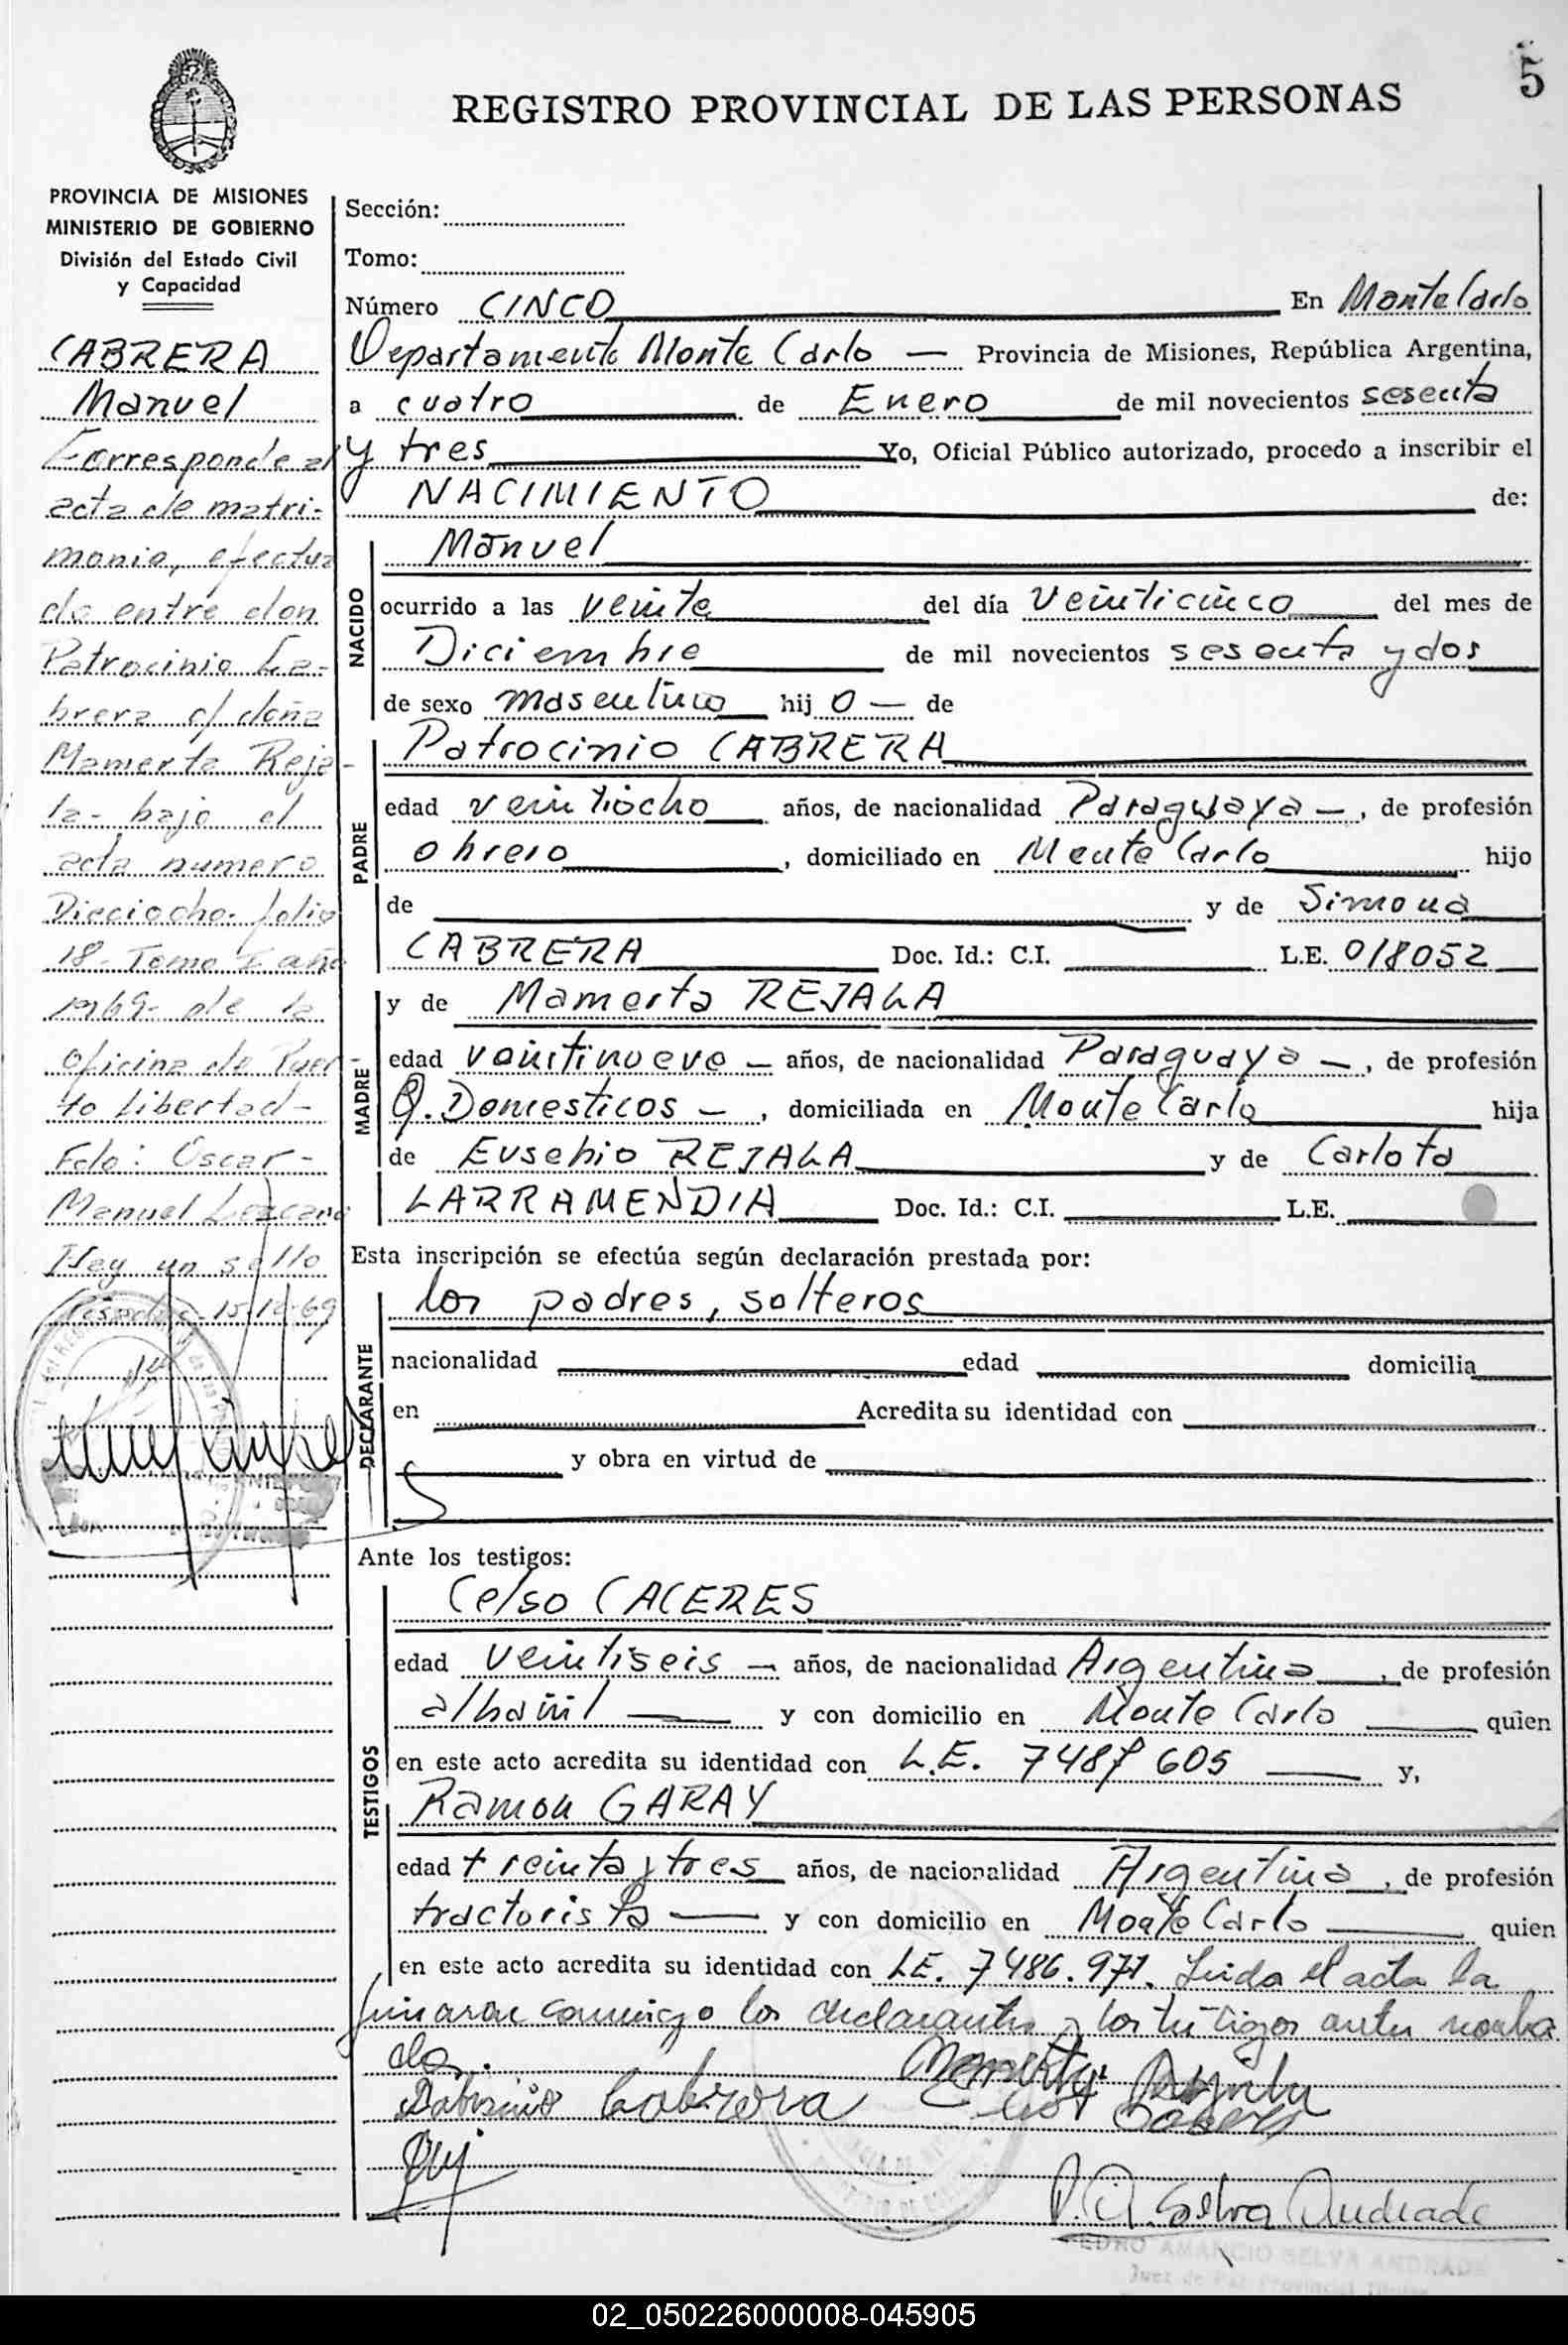 5
REGISTRO PROVINCIAL DE LAS PERSONAS
PROVINCIA DE MISIONES
MINISTERIO DE GOBIERNO
División del Estado Civil
y Capacidad
CABRERA
Manuel
Corresponde al
acta de matri-
monio, efectua
do entre don
Patrocinio Ca-
brera c/ doña
Mamerta Reja-
la- bajo el
acta numero
Dieciocho- folio
18- Tomo I año
1969- de la
oficina de Puer-
to Libertad-
Fdo: Oscar-
Manuel Lezcano
Hay un sello
Posadas 15-12-69
Sección:
Tomo:
Número CINCO En Monte Carlo
Departamento Monte Carlo — Provincia de Misiones, República Argentina,
a cuatro de Enero de mil novecientos sesenta
y tres Yo, Oficial Público autorizado, procedo a inscribir el
NACIMIENTO de:
NACIDO
Manuel
ocurrido a las veinte del día veinticinco del mes de
Diciembre de mil novecientos sesenta y dos
de sexo masculino hij o — de
PADRE
Patrocinio CABRERA
edad veintiocho años, de nacionalidad Paraguaya —, de profesión
obrero, domiciliado en Monte Carlo hijo
de y de Simona
CABRERA Doc. Id.: C.I. L.E. 018052
MADRE
y de Mamerta REJALA
edad veintinueve — años, de nacionalidad Paraguaya —, de profesión
Q. Domesticos —, domiciliada en Monte Carlo hija
de Eusebio REJALA y de Carlota
LARRAMENDIA Doc. Id.: C.I. L.E.
Esta inscripción se efectúa según declaración prestada por:
DECLARANTE
los padres, solteros
nacionalidad edad domicilia
en Acredita su identidad con
y obra en virtud de
Ante los testigos:
TESTIGOS
Celso CACERES
edad veintiseis — años, de nacionalidad Argentina, de profesión
albañil — y con domicilio en Monte Carlo quien
en este acto acredita su identidad con L.E. 7487605 — y,
Ramon GARAY
edad treinta y tres años, de nacionalidad Argentina, de profesión
tractorista — y con domicilio en Monte Carlo quien
en este acto acredita su identidad con L.E. 7486.971. Leida el acta la
firmaron conmigo los declarantes y los testigos antes nombra
dos.
Cabrera
P. A. Selva Andrade
PEDRO AMANCIO SELVA ANDRADE
Juez de Paz Provincial Titular
02_050226000008-045905